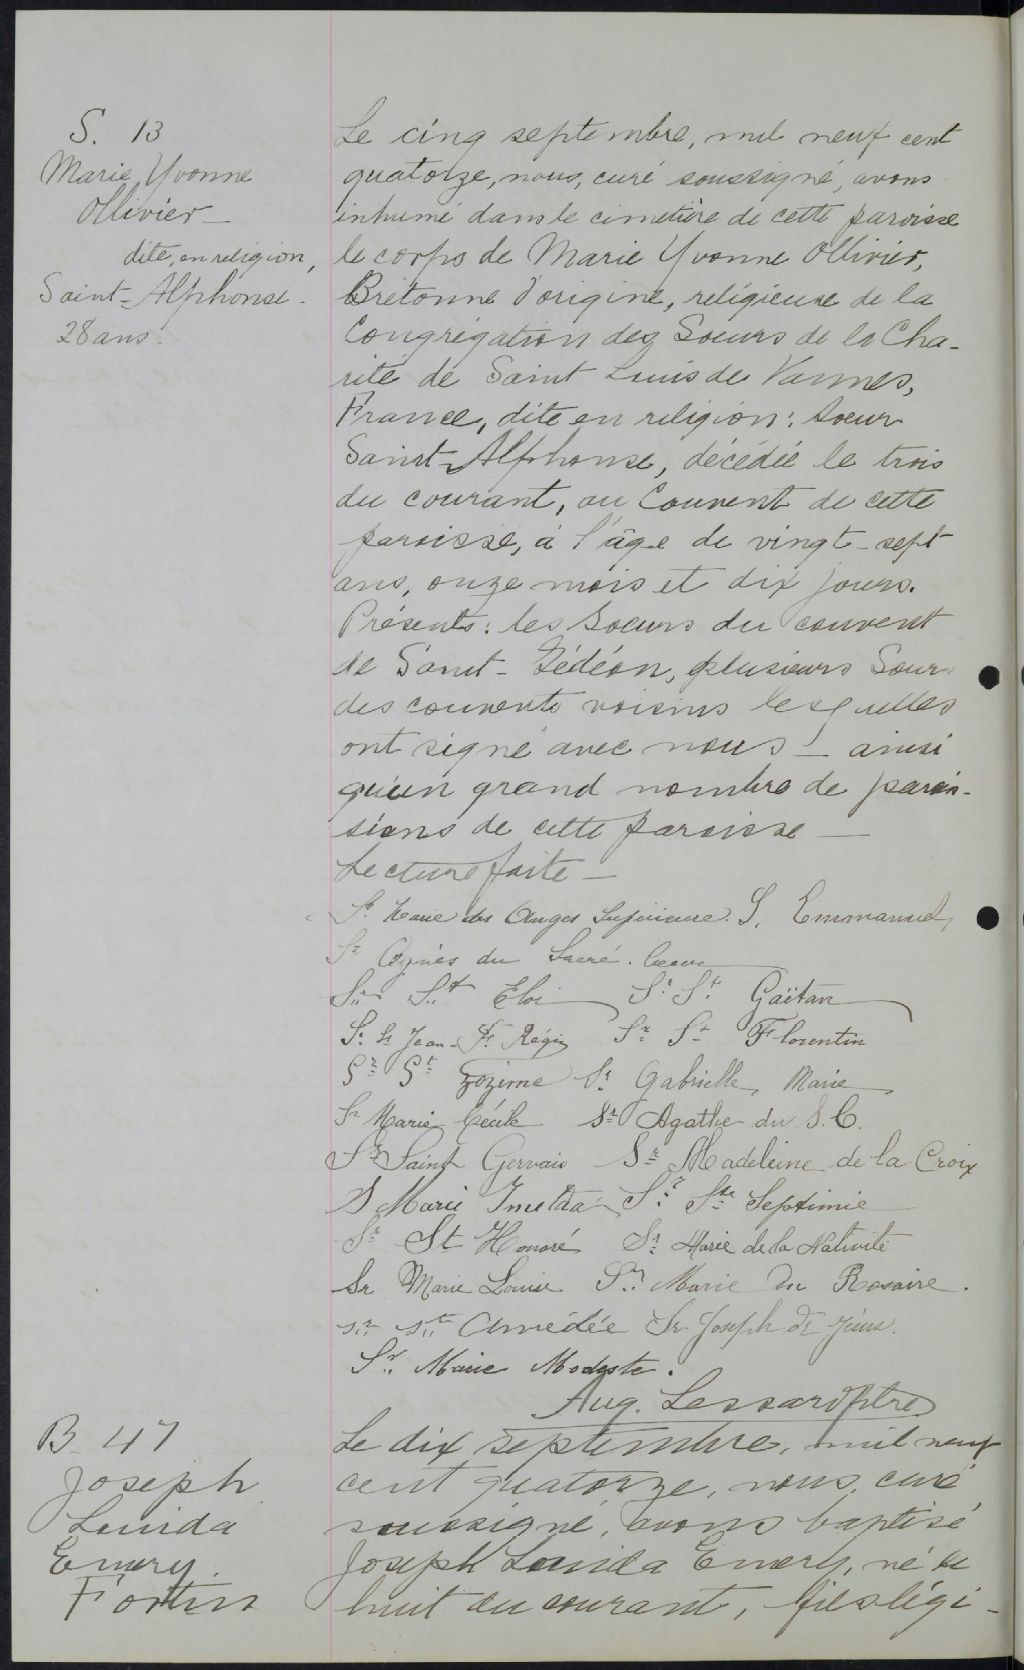 S. 13
Marie Yvonne
Ollivier
dite, en religion,
Saint-Alphonse.
28 ans.
Le cinq septembre, mil neuf cent
quatorze, nous, curé soussigné, avons
inhumé dans le cimetière de cette paroisse
le corps de Marie Yvonne Ollivier,
Bretonne d'origine, religieuse de la
Congrégation des Soeurs de la Cha-
rité de Saint Louis de Vannes,
France, dite en religion: Soeur
Saint-Alphonse, décédée le trois
du courant, au Couvent de cette
paroisse, à l'âge de vingt-sept
ans, onze mois et dix jours.
Présents: les Soeurs du couvent
de Saint-Gédéon, plusieurs Soeurs
des couvents voisins lesquelles
ont signé avec nous - ainsi
qu'un grand nombre de parois-
siens de cette paroisse -
Lecture faite -
Sr Marie des Anges Supérieure. S. Emmanuel,
Sr Agnès du Sacré. Coeur
Sr St Eloi Sr St Gaëtan
Sr St Jean-F. Régis Sr St Florentin
Sr St Zozime Sr Gabrielle Marie
Sr Marie Cécile Sr Agathe du S.C.
Sr Saint Gervais Sr Madeleine de la Croix
S Marie Imelda Sr Ste Septimie
Sr St Honoré Sr Marie de la Nativité
Sr Marie Louise Sr Marie du Rosaire.
Sr St Amédée Sr Joseph de Jésus.
Sr Marie Modeste.
Aug. Lessard Ptre
B 47
Joseph
Louida
Emery
Fortin
Le dix septembre, mil neuf
cent quatorze, nous, curé
soussigné, avons baptisé
Joseph Louida Emery, né le
huit du courant, fils légi-